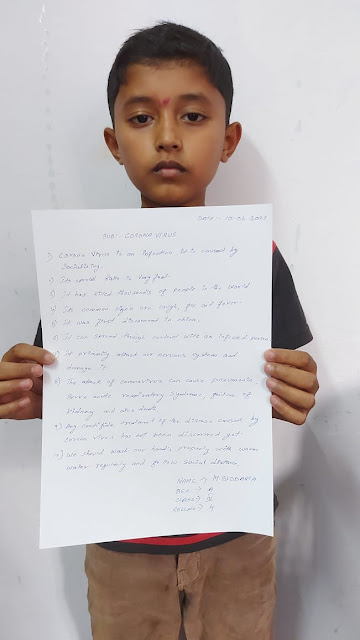 DATE:- 10-06-2021
SUB:- CORONA VIRUS
1) Corona Virus is an infection. It is caused by
Socialising.
2) Its spread Rate is very fast.
3) It has killed thousands of people in the world
4) Its common signs are cough, flu and fever.
5) It was first discovered in china.
6) It can spread through contact with an infected person
7) It primarily attack our nervous systems and
damage it
8) The attack of coronavirus can cause pneumonia
Severe acute respiratory syndrome, failure of
kidney and also death
9) Any certifiable treatment of the disease caused by
corona virus has not been discovered yet.
10) We should wash our hands properly with warm
water regularly and follow social distance
NAME →
SEC → A
CLASS →
ROLLNO → 4